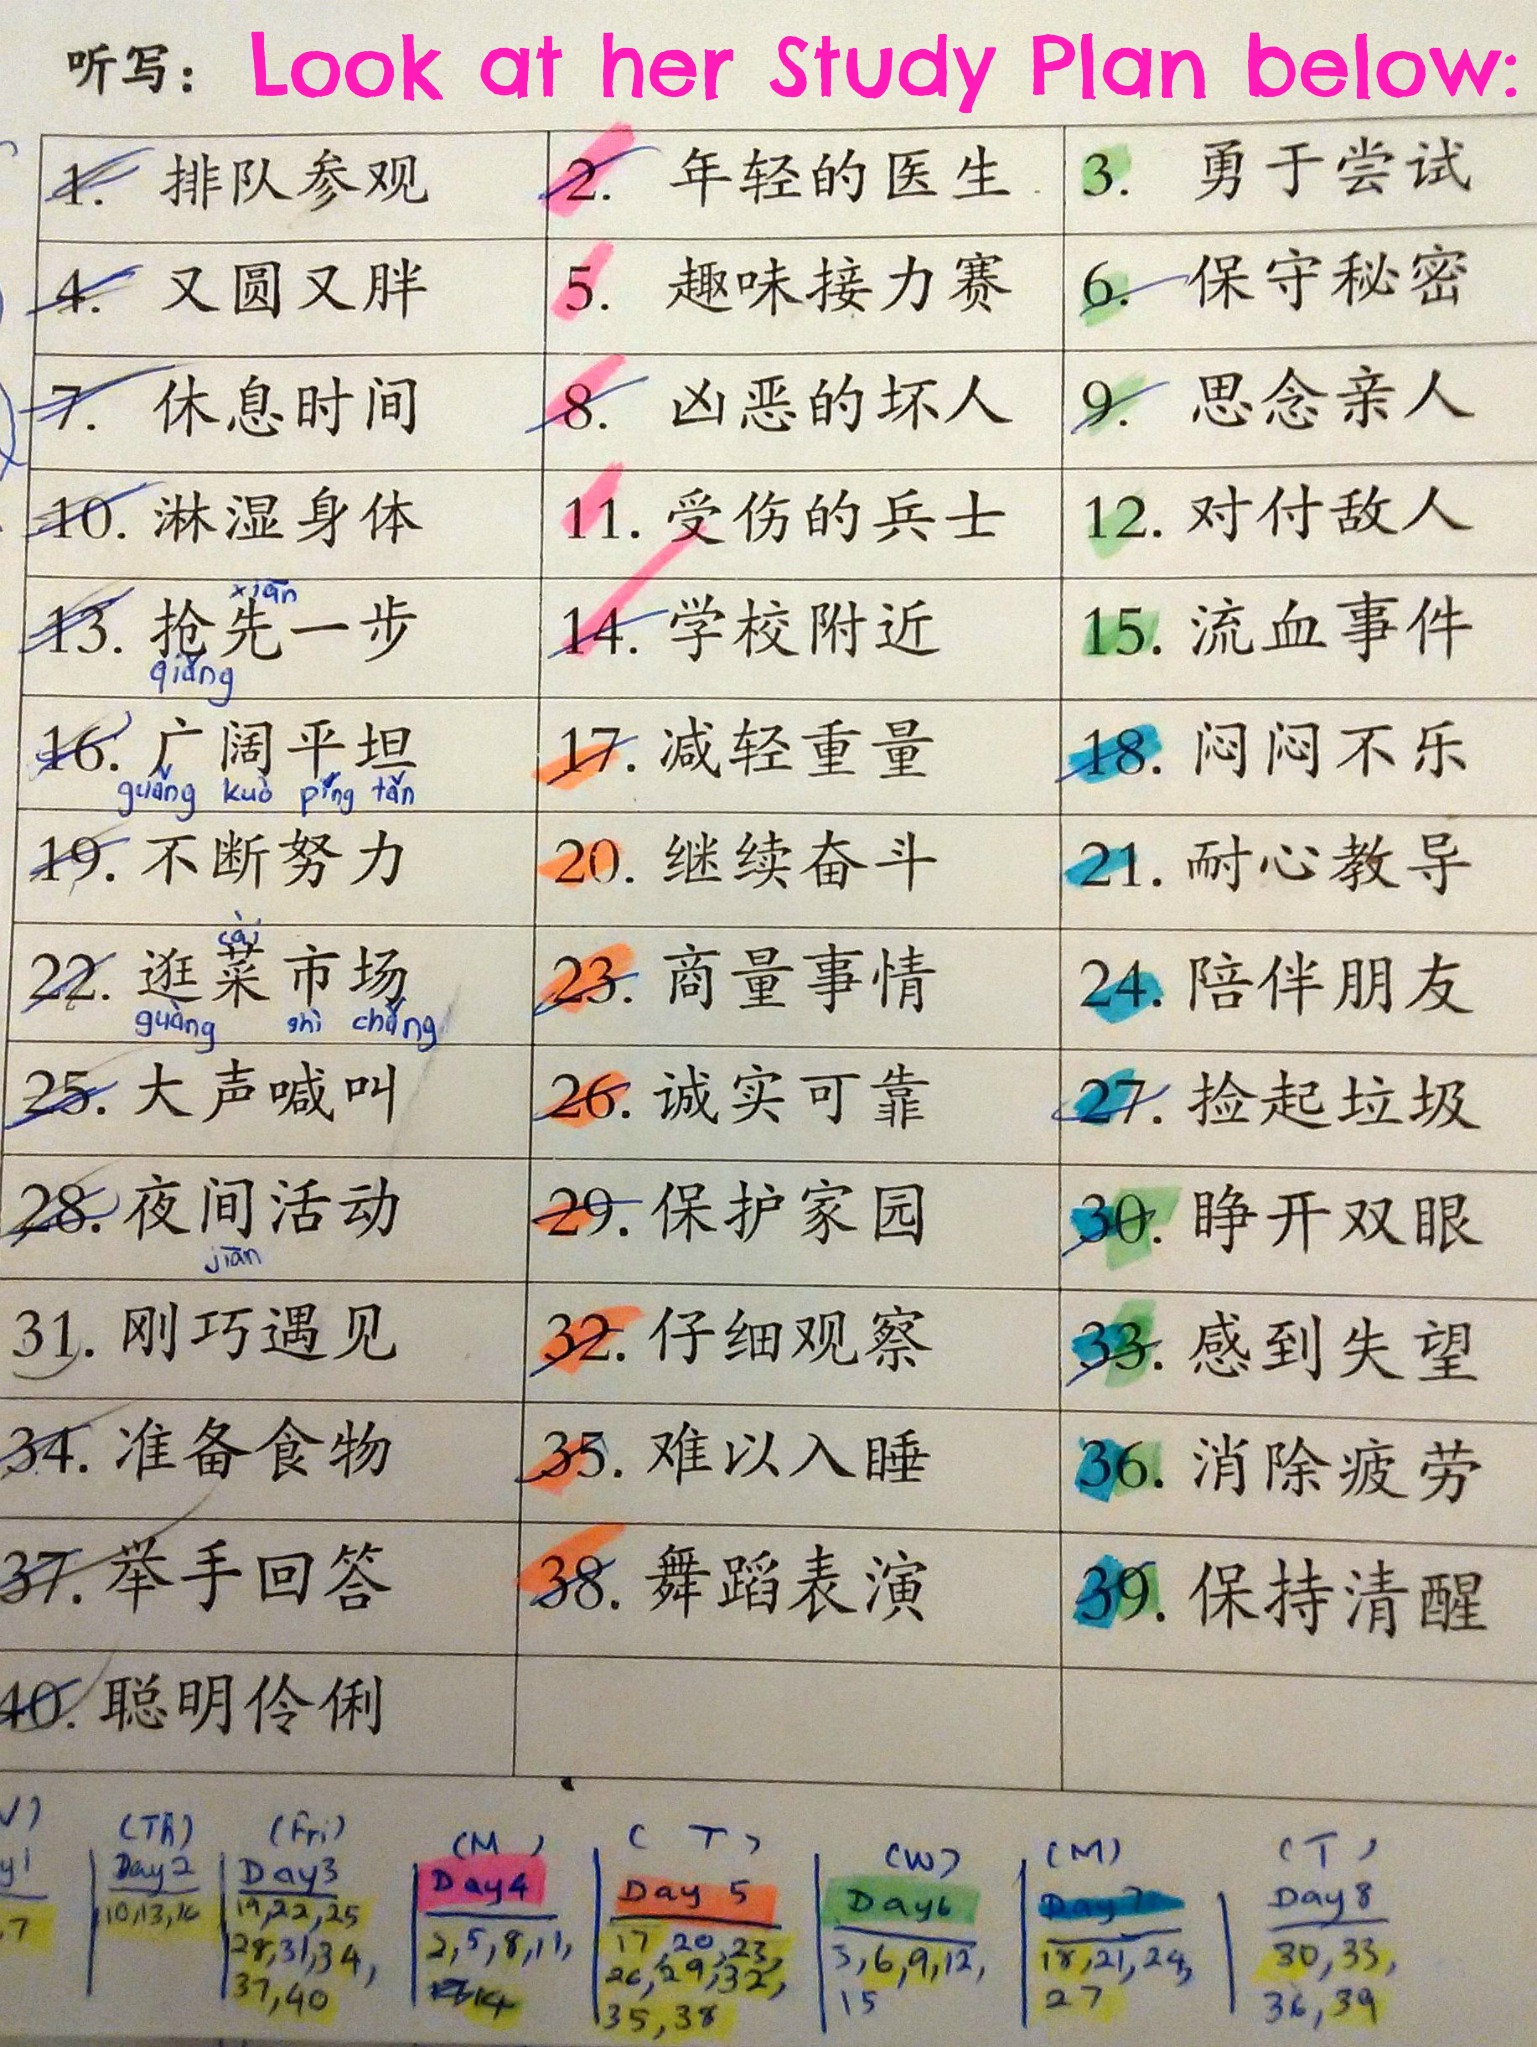 听写： Look at her Study Plan below:
1. 排队参观 2. 年轻的医生 3. 勇于尝试
4. 又圆又胖 5. 趣味接力赛 6. 保守秘密
7. 休息时间 8. 凶恶的坏人 9. 思念亲人
10. 淋湿身体 11. 受伤的兵士 12. 对付敌人
xiān
13. 抢先一步 14. 学校附近 15. 流血事件
qiǎng
16. 广阔平坦 17. 减轻重量 18. 闷闷不乐
guǎng kuò píng tǎn
19. 不断努力 20. 继续奋斗 21. 耐心教导
cài
22. 逛菜市场 23. 商量事情 24. 陪伴朋友
guàng shì chǎng
25. 大声喊叫 26. 诚实可靠 27. 捡起垃圾
28. 夜间活动 29. 保护家园 30. 睁开双眼
jiān
31. 刚巧遇见 32. 仔细观察 33. 感到失望
34. 准备食物 35. 难以入睡 36. 消除疲劳
37. 举手回答 38. 舞蹈表演 39. 保持清醒
40. 聪明伶俐
(Th) (Fri) (M) (T) (W) (M) (T)
Day2 Day3 Day4 Day 5 Day6 Day7 Day8
,7 10,13,16 19,22,25 2,5,8,11, 17,20,23, 3,6,9,12, 18,21,24, 30,33,
28,31,34, 14 26,29,32, 15 27 36,39
37,40 35,38